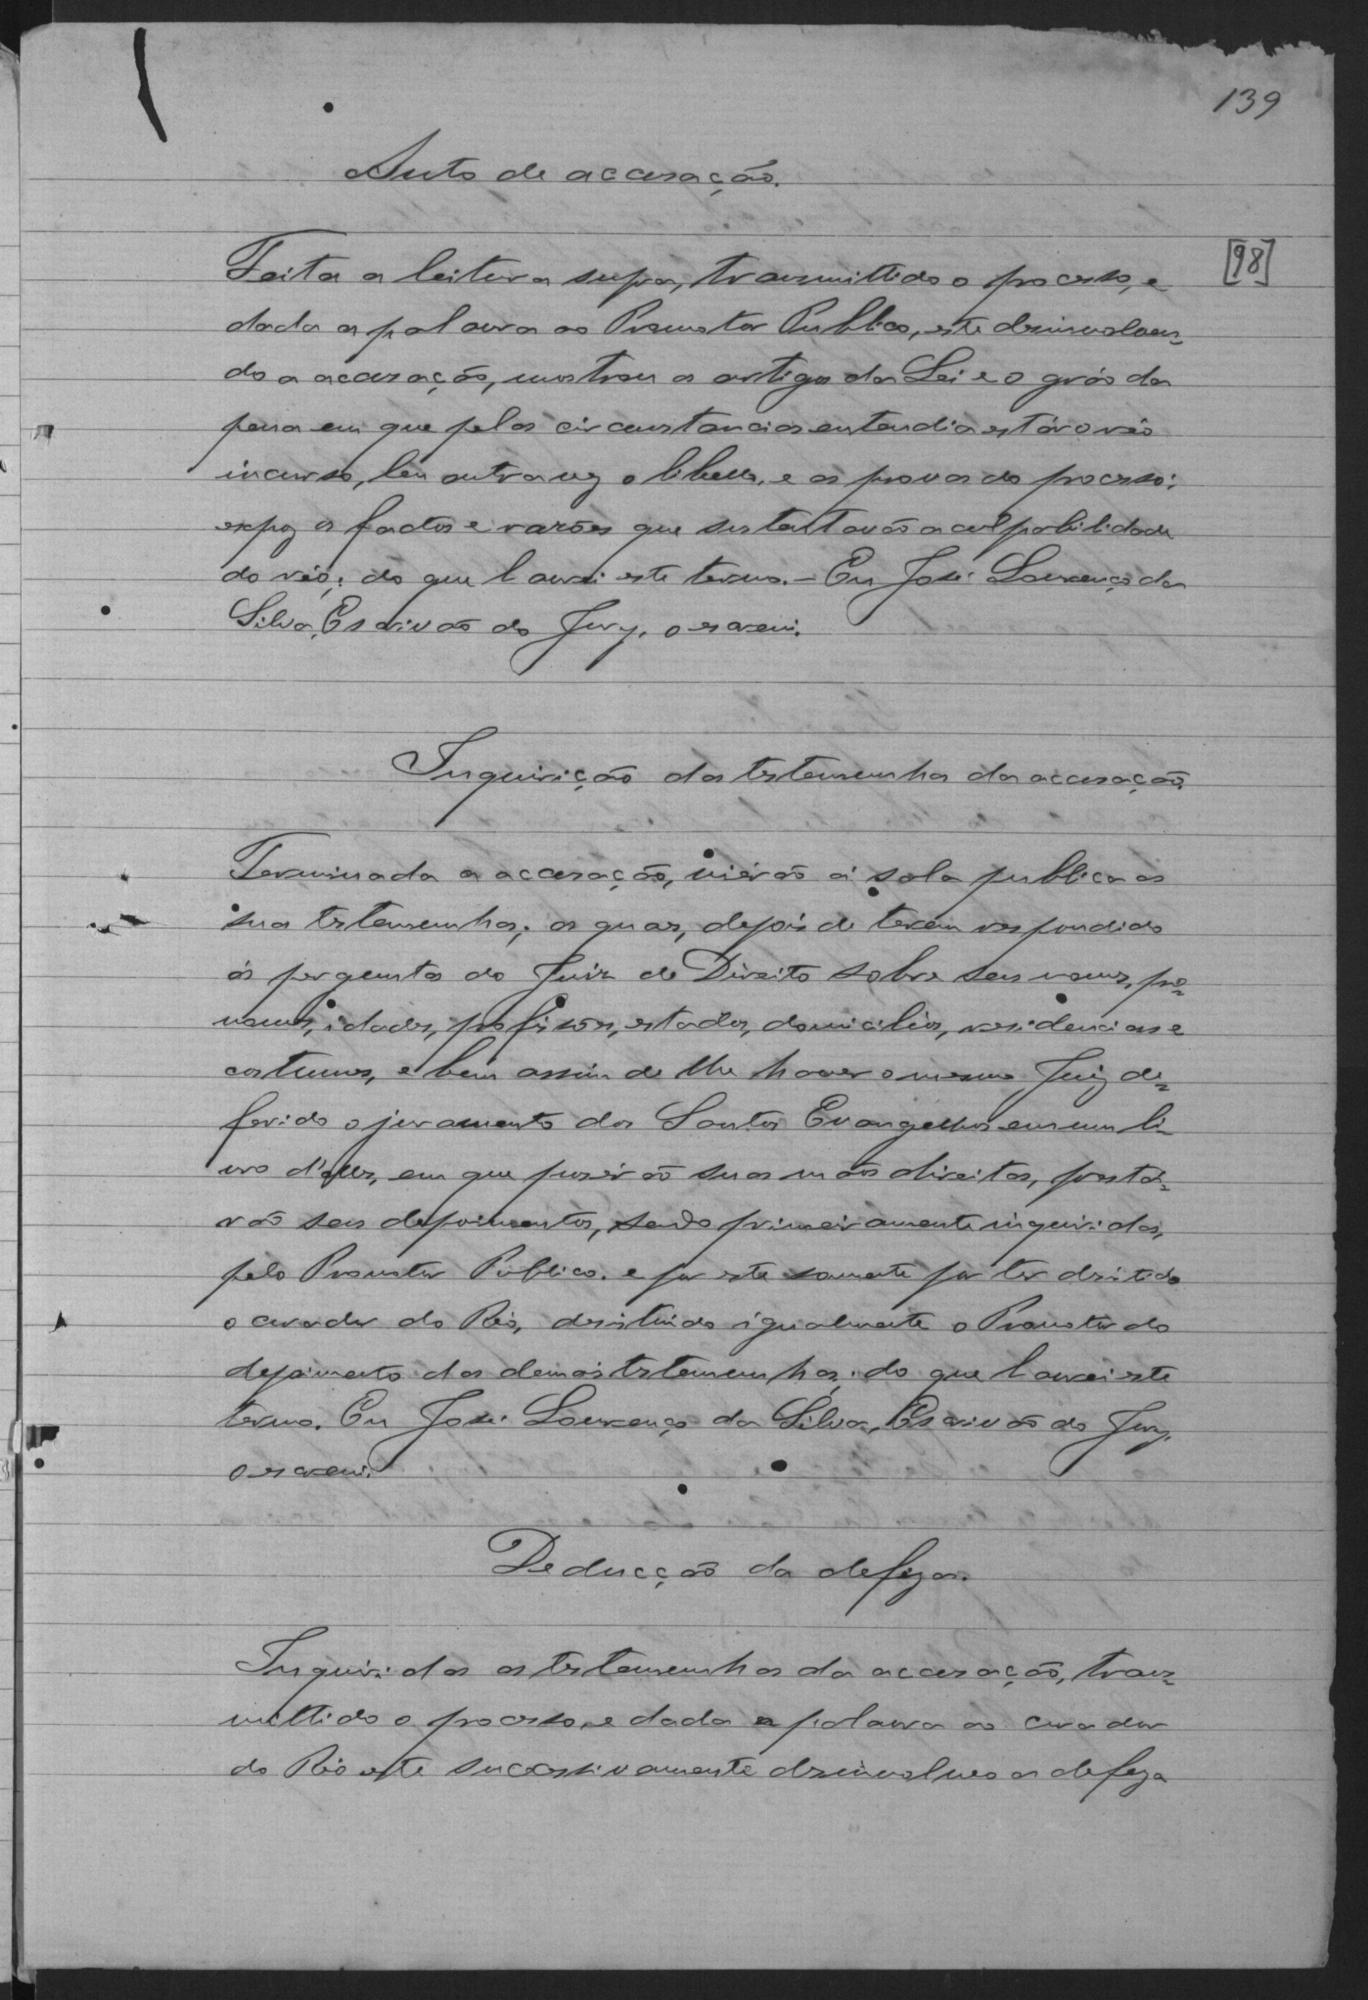 139
Auto de accusação.
[98]
Feita a leitura supra, transmittido o processo, e
dada a palavra ao Promotor Publico, este desinvolven-
do a accusação, mostrou o artigo da Lei e o gráo da
pena em que pelas circunstancias entendia estár o réo
incurso, leu outra vez o libello, e as provas do processo;
expoz os factos e razões que sustentavão a culpabilidade
do réo; do que lavrei este termo. – Eu José Lourenço da
Silva, Escrivão do Jury, o escrevi.
Inquirição das testemunhas da accusação.
Terminada a accusação, viérão á sala publica as
suas testemunhas; as quaes, depois de terem respondido
ás perguntas do Juiz de Direito sobre seus nomes, pro-
nomes, idades, profissões, estados, domicilios, residencias e
costumes, e bem assim de lhe haver o mesmo Juiz de-
ferido o juramento dos Santos Evangelhos em um li-
vro d'elles, em que puserão suas mãos direitas, prestá-
rão seus depoimentos, sendo primeiramente inquiridas,
pelo Promotor Publico. e por este somente por ter desistido
o curador do Réo, desistindo igualmente o Promotor do
depoimento das demais testemunhas; do que lavrei este
termo. Eu José Lourenço da Silva, Escrivão do Jury,
o escrevi.
Deducção da defeza.
Inquiridas as testemunhas da accusação, trans-
mittido o processo, e dada a palavra ao curador
do Réo este successivamente desinvolveo a defeza